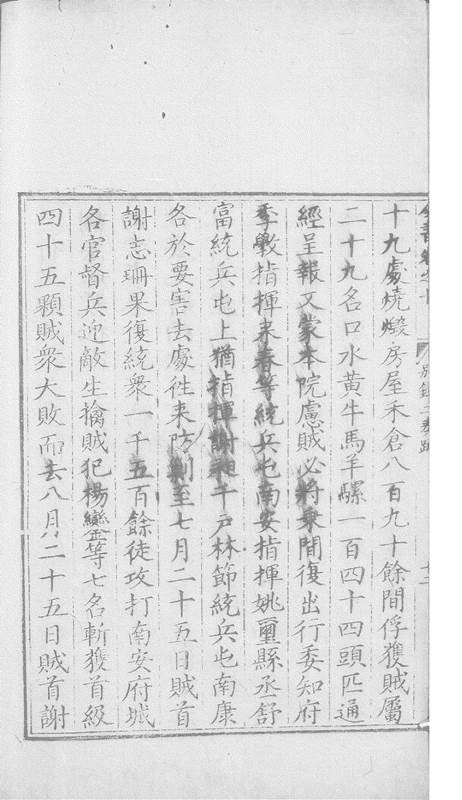 十九處燒燬房屋禾倉八百九十餘間俘獲賊屬
二十九名口水黃牛馬羊騾一百四十四頭匹通
經呈報又蒙本院慮賊必將乘間復出行委知府
季斆指揮來春等統兵屯南安指揮姚璽縣丞舒
富統兵屯上猶指揮謝昶千戶林節統兵屯南康
各於要害去處徃來防剿至七月二十五日賊首
謝志珊果復統衆一千五百餘徒攻打南安府城
各官督兵迎敵生擒賊犯楊鑾等七名斬獲首級
四十五顆賊衆大敗而去八月二十五日賊首謝